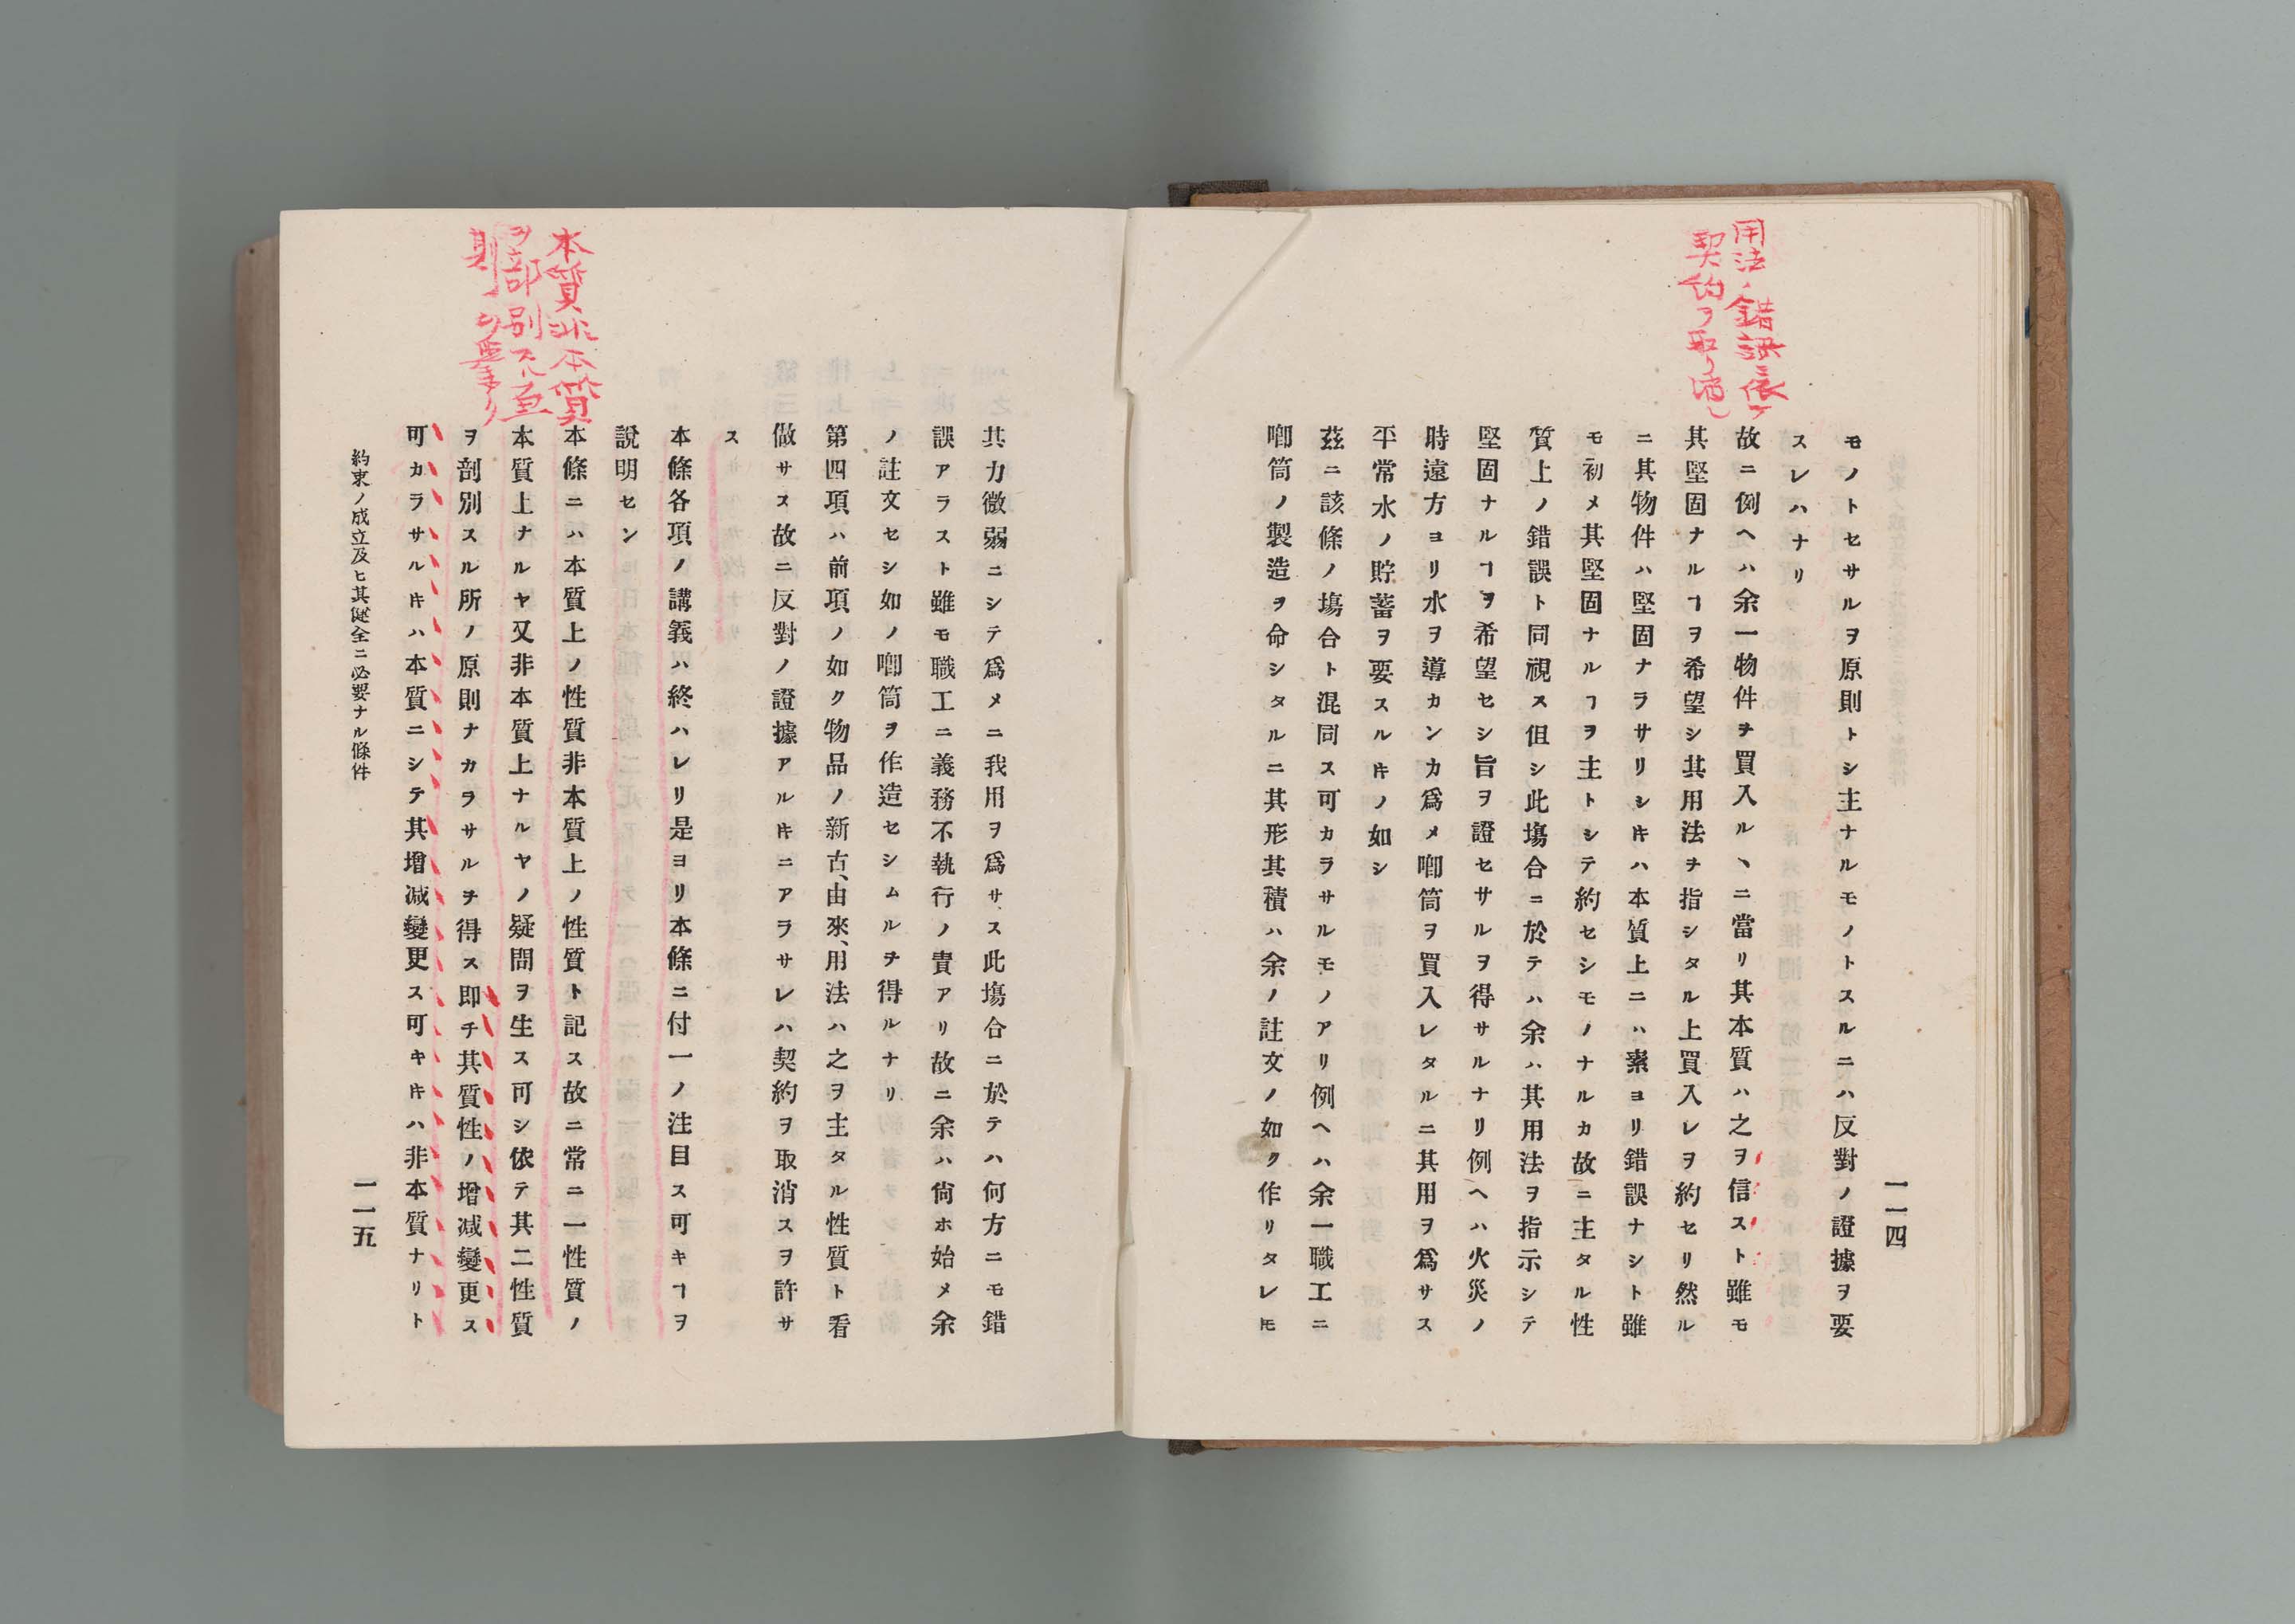 一一四
用法ノ錯誤ニ依テ
契約ヲ取リ消シ
モノトセサルヲ原則トシ主ナルモノトスルニハ反對ノ證據ヲ要
スレハナリ
故ニ例ヘハ余一物件ヲ買入ルヽニ當リ其本質ハ之ヲ信スト雖モ
其堅固ナルヿヲ希望シ其用法ヲ指シタル上買入レヲ約セリ然ル
ニ其物件ハ堅固ナラサリシ𪜈ハ本質上ニハ素ヨリ錯誤ナシト雖
モ初メ其堅固ナルヿヲ主トシテ約セシモノナルカ故ニ主タル性
質上ノ錯誤ト同視ス但シ此塲合ニ於テハ余ハ其用法ヲ指示シテ
堅固ナルヿヲ希望セシ旨ヲ證セサルヲ得サルナリ例ヘハ火災ノ
時遠方ヨリ水ヲ導カンカ爲メ喞筒ヲ買入レタルニ其用ヲ爲サス
平常水ノ貯蓄ヲ要スル𪜈ノ如シ
茲ニ該條ノ塲合ト混同ス可カラサルモノアリ例ヘハ余一職工ニ
喞筒ノ製造ヲ命シタルニ其形其積ハ余ノ註文ノ如ク作リタレ𪜈
其力微弱ニシテ爲メニ我用ヲ爲サス此塲合ニ於テハ何方ニモ錯
誤アラスト雖モ職工ニ義務不執行ノ責アリ故ニ余ハ尙ホ始メ余
ノ註文セシ如ノ喞筒ヲ作造セシムルヲ得ルナリ
第四項ハ前項ノ如ク物品ノ新古、由來、用法ハ之ヲ主タル性質ト看
做サス故ニ反對ノ證據アル𪜈ニアラサレハ契約ヲ取消スヲ許サ
ス
本條各項ノ講義ハ終ハレリ是ヨリ本條ニ付一ノ注目ス可キヿヲ
說明セン
本質非本質
ヲ部別スル原
則ノ必要ナリ
本條ニハ本質上ノ性質非本質上ノ性質ト記ス故ニ常ニ一性質ノ
本質上ナルヤ又非本質上ナルヤノ疑問ヲ生ス可シ依テ其二性質
ヲ剖別スル所ノ原則ナカラサルヲ得ス即チ其質性ノ增減變更ス
可カラサル𪜈ハ本質ニシテ其增減變更ス可キ𪜈ハ非本質ナリト
約束ノ成立及ヒ其健全ニ必要ナル條件
一一五